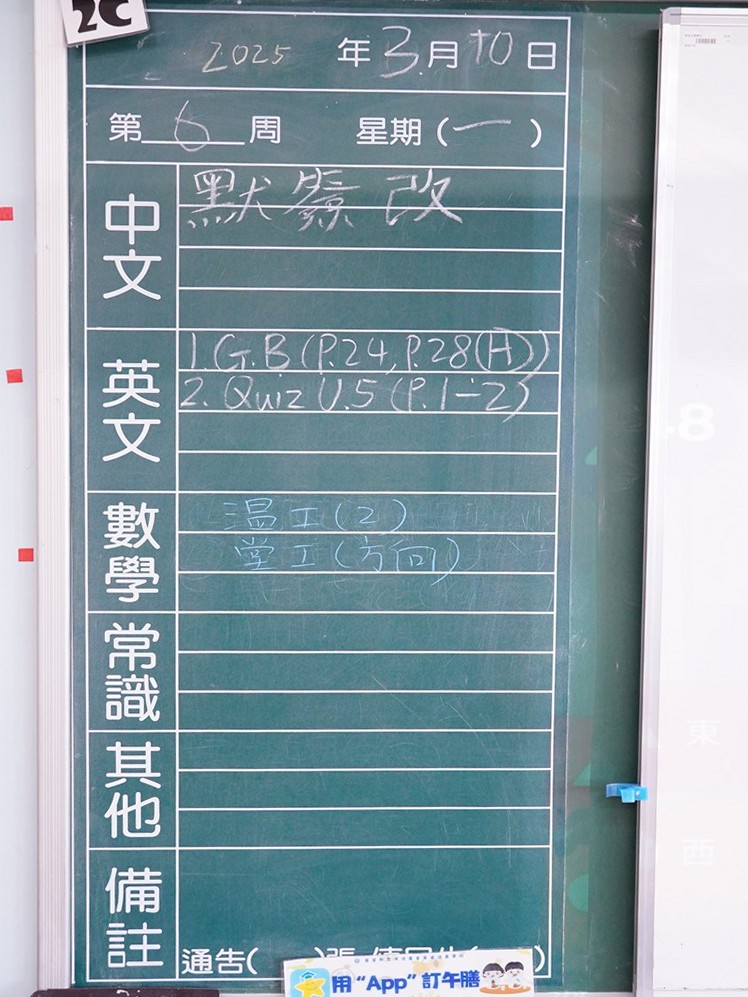 2C
2025 年 3 月 10 日
第 6 周 星期 (一)
中文
默簿 改
英文
1. G.B (P.24, P.28(H))
2. Quiz U.5 (P.1-2)
數學
溫工(2)
堂工(方向)
常識
其他
備註
通告( )張
用 “App” 訂午膳
8
東
西